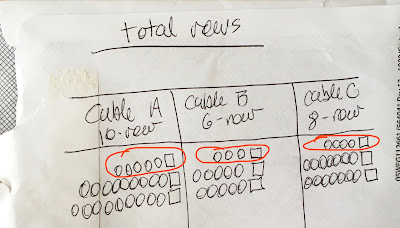 total rows
Cable A
10-row
Cable B
6-row
Cable C
8-row